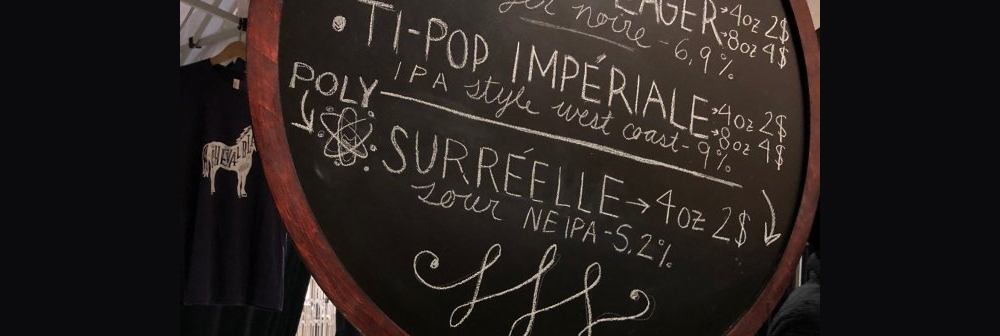 LAGER → 4oz 2$
noire - 6,9% → 8oz 4$
• TI-POP IMPÉRIALE → 4oz 2$
IPA style west coast - 9% → 8oz 4$
POLY
SURRÉELLE → 4oz 2$
Sour NEIPA - 5,2%
CHEVAL